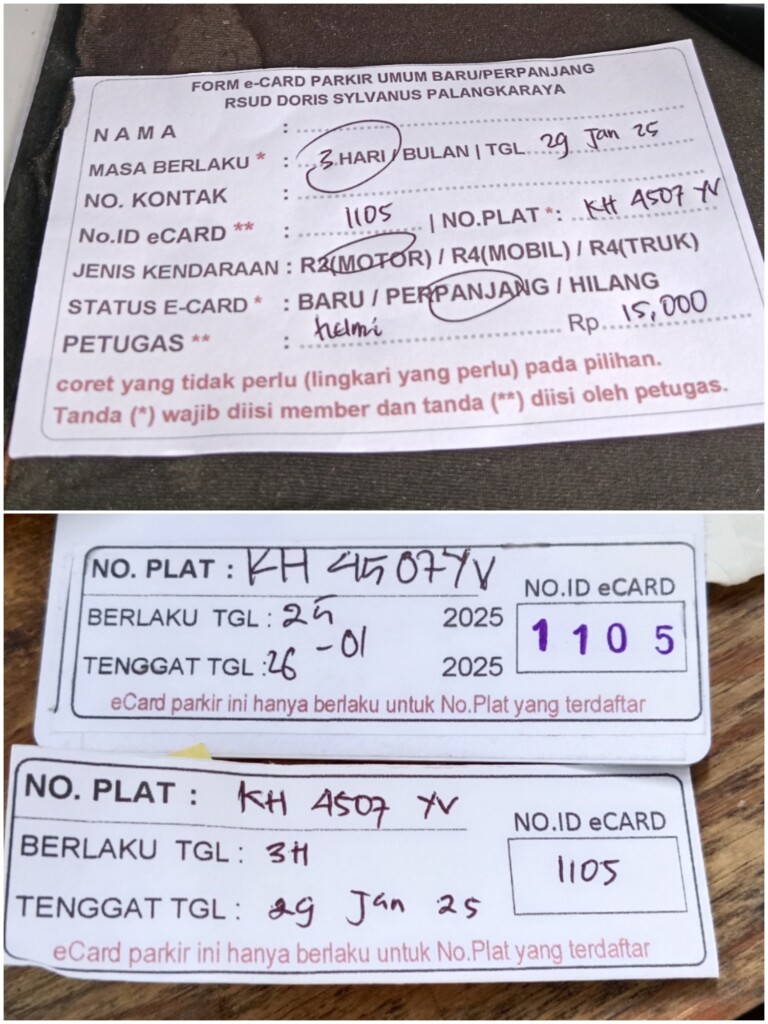 FORM e-CARD PARKIR UMUM BARU/PERPANJANG
RSUD DORIS SYLVANUS PALANGKARAYA
NAMA :
MASA BERLAKU * : 3 HARI / BULAN | TGL 29 Jan 25
NO. KONTAK :
No.ID eCARD ** : 1105 | NO.PLAT *: KH 4507 YV
JENIS KENDARAAN : R2(MOTOR) / R4(MOBIL) / R4(TRUK)
STATUS E-CARD * : BARU / PERPANJANG / HILANG
PETUGAS ** : helmi Rp 15,000
coret yang tidak perlu (lingkari yang perlu) pada pilihan.
Tanda (*) wajib diisi member dan tanda (**) diisi oleh petugas.
NO. PLAT : KH 4507 YV
NO.ID eCARD
BERLAKU TGL : 25 2025
1105
TENGGAT TGL : 26 -01 2025
eCard parkir ini hanya berlaku untuk No.Plat yang terdaftar
NO. PLAT : KH 4507 YV
NO.ID eCARD
BERLAKU TGL : 3H
1105
TENGGAT TGL : 29 Jan 25
eCard parkir ini hanya berlaku untuk No.Plat yang terdaftar